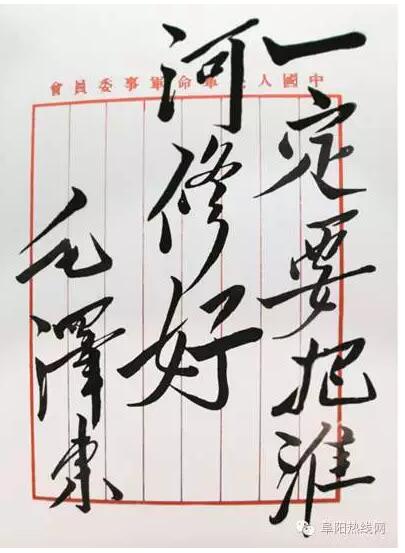 中國人民革命軍事委員會
一定要把淮
河修好
毛澤東
阜阳热线网